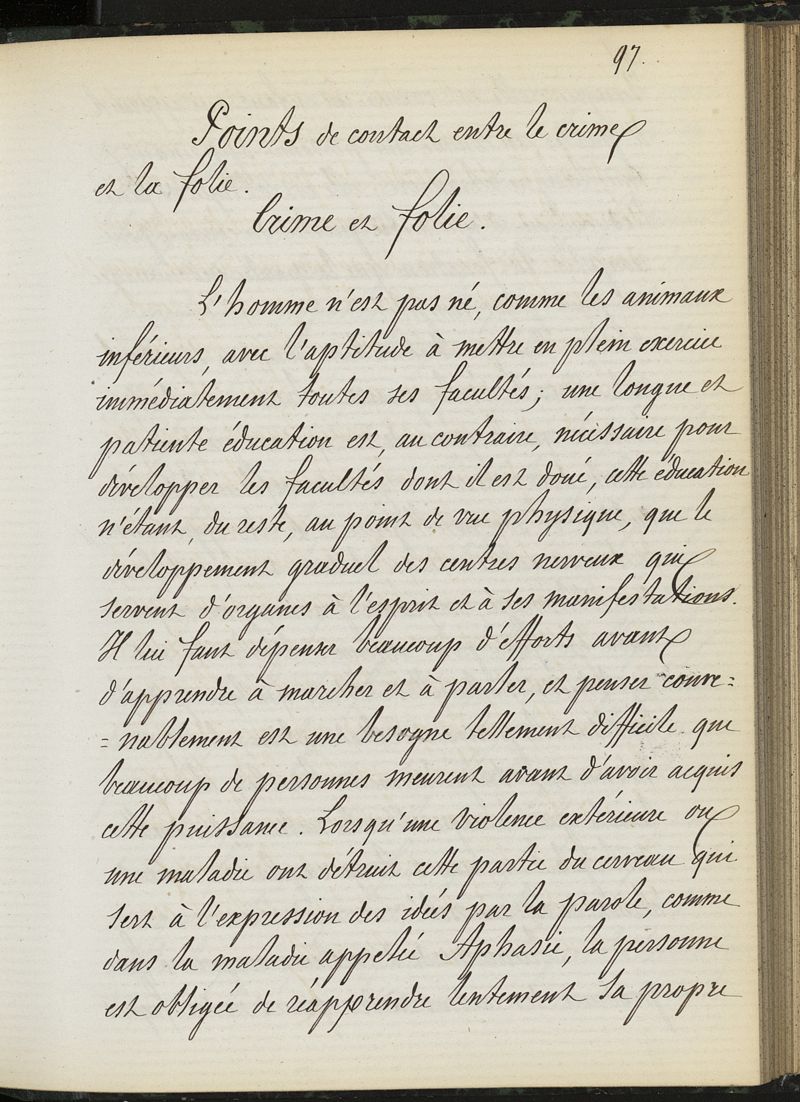 97.
Points de contact entre le crime
et la folie.
Crime et folie.
L'homme n'est pas né, comme les animaux
inférieurs, avec l'aptitude à mettre en plein exercice
immédiatement toutes ses facultés; une longue et
patiente éducation est, au contraire, nécessaire pour
développer les facultés dont il est doué, cette éducation
n'étant, du reste, au point de vue physique, que le
développement graduel des centres nerveux qui
servent d'organes à l'esprit et à ses manifestations.
Il lui faut dépenser beaucoup d'efforts avant
d'apprendre à marcher et à parler, et penser conve=
=nablement est une besogne tellement difficile que
beaucoup de personnes meurent avant d'avoir acquis
cette puissance. Lorsqu'une violence extérieure ou
une maladie ont détruit cette partie du cerveau qui
sert à l'expression des idées par la parole, comme
dans la maladie appelée Aphasie, la personne
est obligée de réapprendre lentement sa propre